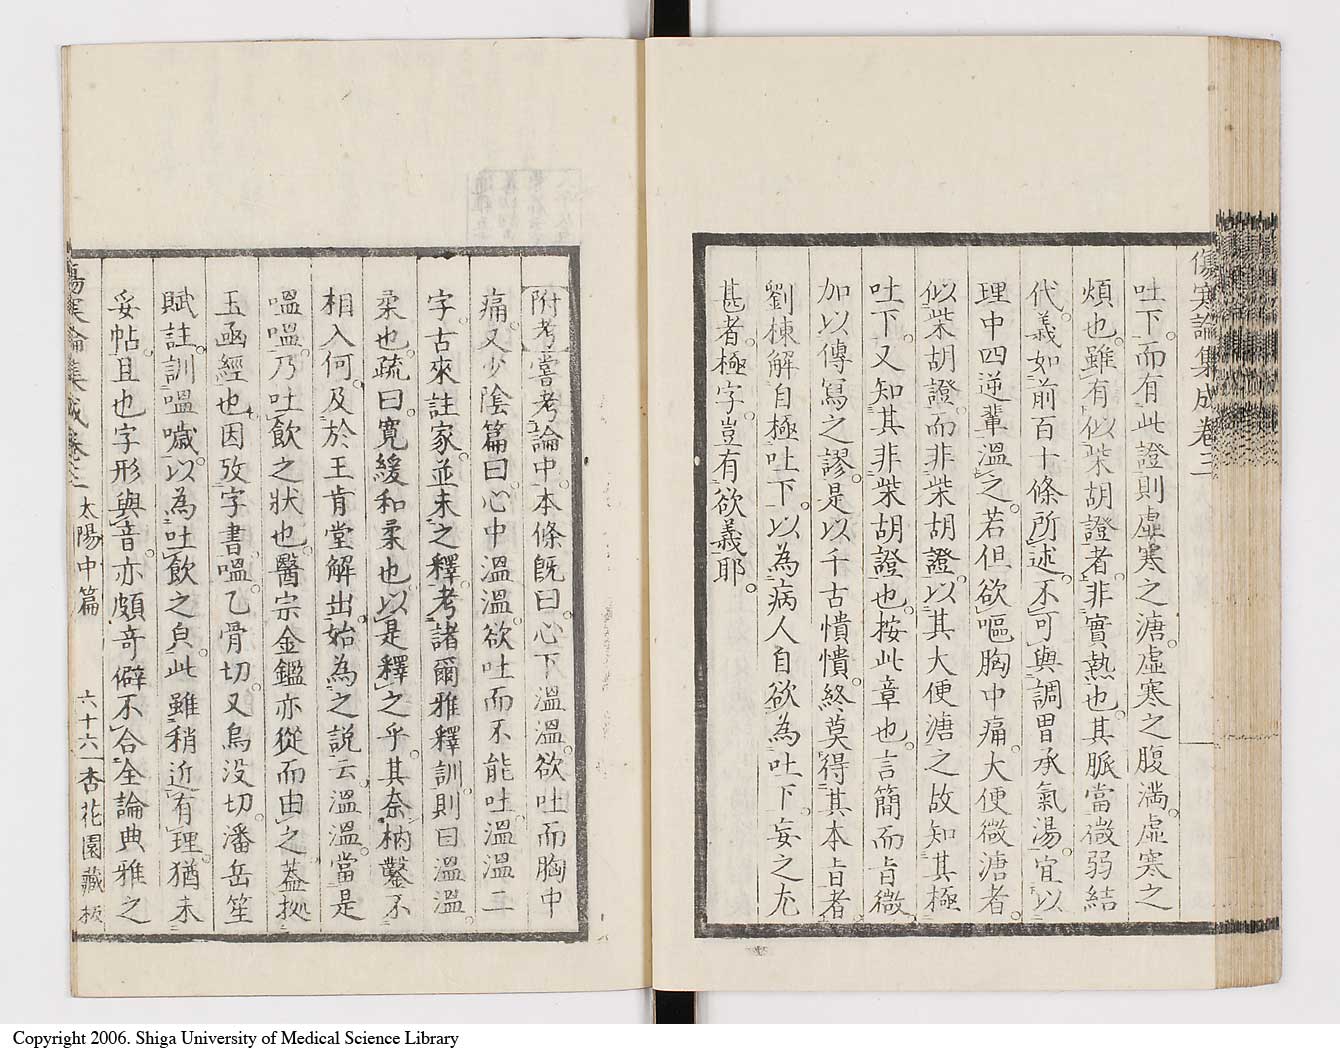 傷寒論集成卷三
吐下。而有此證則虛寒之溏。虛寒之腹満。虛寒之
煩也。雖有似柴胡證者。非實熱也。其脈當微弱結
代。義如前百十條所述。不可與調胃承氣湯。宜以
理中四逆輩溫之。若但欲嘔胸中痛。大便微溏者。
似柴胡證。而非柴胡證。以其大便溏之故知其極
吐下。又知其非柴胡證也。按此章也。言簡而旨微
加以傳寫之謬。是以千古憒憒。終莫得其本旨者
劉棟解自極吐下。以為病人自欲為吐下。妄之尤
甚者。極字。豈有欲義耶。
附考 嘗考論中。本條既曰。心下溫溫。欲吐而胸中
痛。又少陰篇曰。心中溫溫。欲吐而不能吐。溫溫二
字。古來註家並未之釋。考諸爾雅釋訓。則曰溫溫。
柔也。疏曰。寬緩和柔也。以是釋之乎。其奈枘鑿不
相入何。及於王肯堂解出。始為之説云。溫溫。當是
嗢嗢。乃吐飲之狀也。醫宗金鑑亦從而由之。蓋拠
玉函經也。因攷字書。嗢。乙骨切。又烏没切。潘岳笙
賦註。訓嗢噦。以為吐飲之皃。此雖稍近有理。猶未
妥帖。且也字形與音。亦頗奇僻。不合全論典雅之
傷寒論集成卷三 太陽中篇 六十六 杏花園藏板
Copyright 2006. Shiga University of Medical Science Library